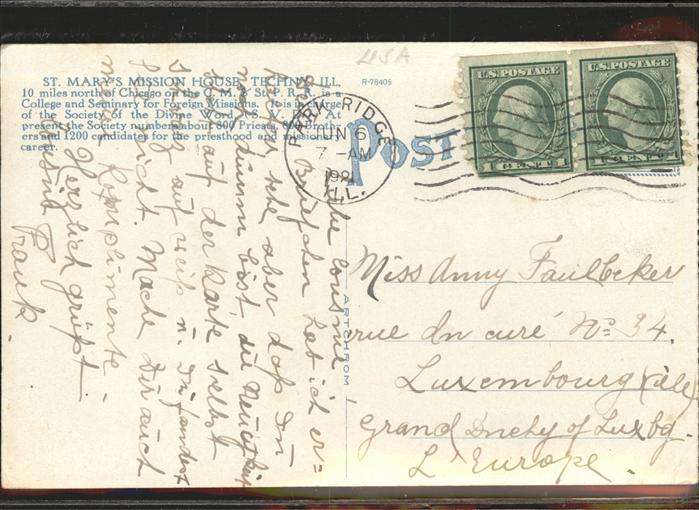 USA
ST. MARY'S MISSION HOUSE, TECHNY, ILL.
10 miles north of Chicago on the C. M. & St. P. R. R. is a
College and Seminary for Foreign Missions. It is in charge
of the Society of the Divine Word, S. V. D. At
present the Society numbers about 800 Priests, 800 Broth-
ers and 1200 candidates for the priesthood and missionary
career.
R-78405
POST
PARK RIDGE
JUN 6
7 - AM
192
ILL.
U.S. POSTAGE
1 CENT 1
U.S. POSTAGE
1 CENT 1
ARTCHROM
Cousine
Briefchen hab ich er=
sehe aber daß Du
die
auf der Karte selbst
auf weiß u. Du fandest
nicht. Mache Dir auch
meine Complimente -
Herzlich grüßt
Cousin Frank.
Miss Anny Faulbecker
rue du curé No 34.
Luxembourg (ville)
Grand Duchy of Luxbg.
L'Europe.